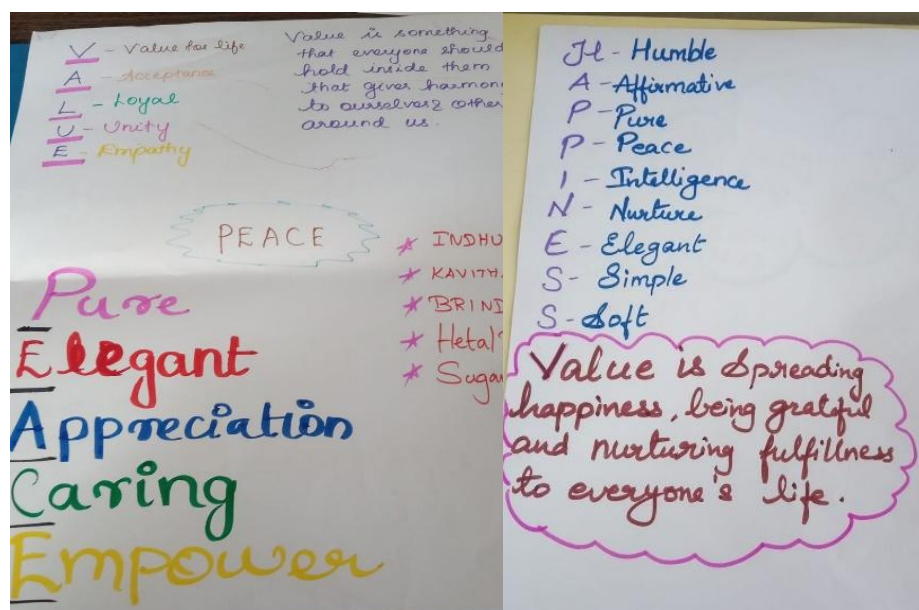 V - Value for life
A - Acceptance
L - Loyal
U - Unity
E - Empathy
Value is something
that everyone should
hold inside them
that gives harmon
to ourselves & other
around us.
PEACE
* INDHU
* KAVITH
* BRIND
* Hetal
* Sugan
Pure
Elegant
Appreciation
Caring
Empower
H - Humble
A - Affirmative
P - Pure
P - Peace
I - Intelligence
N - Nurture
E - Elegant
S - Simple
S - Soft
Value is Spreading
happiness, being grateful
and nurturing fulfillness
to everyone's life.